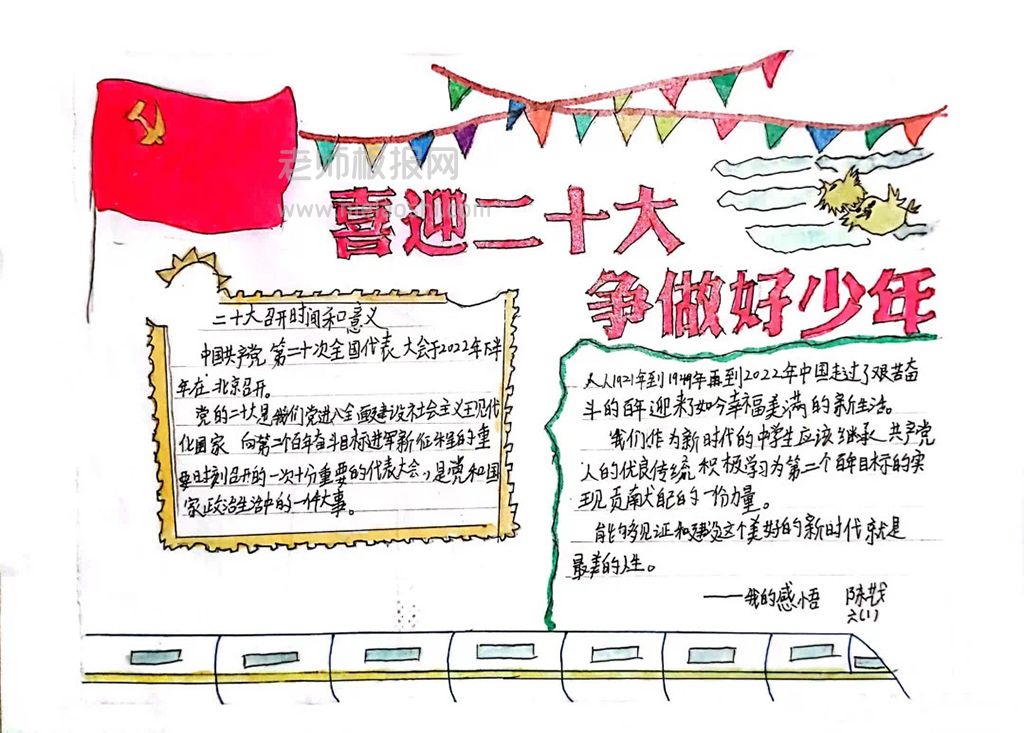 老师板报网
喜迎二十大
争做好少年
二十大召开时间和意义
中国共产党第二十次全国代表大会于2022年下半
年在北京召开。
党的二十大是我们党进入全面建设社会主义现代
化国家 向第二个百年奋斗目标进军新征程的重
要时刻召开的一次十分重要的代表大会，是党和国
家政治生活中的一件大事。
从1921年到1949年再到2022年中国走过了艰苦奋
斗的百年迎来了如今幸福美满的新生活。
我们作为新时代的中学生应该继承共产党
人的优良传统积极学习为第二个百年目标的实
现贡献自己的一份力量。
能够见证和建设这个美好的新时代就是
最美的人生。
——我的感悟 陈
六(1)